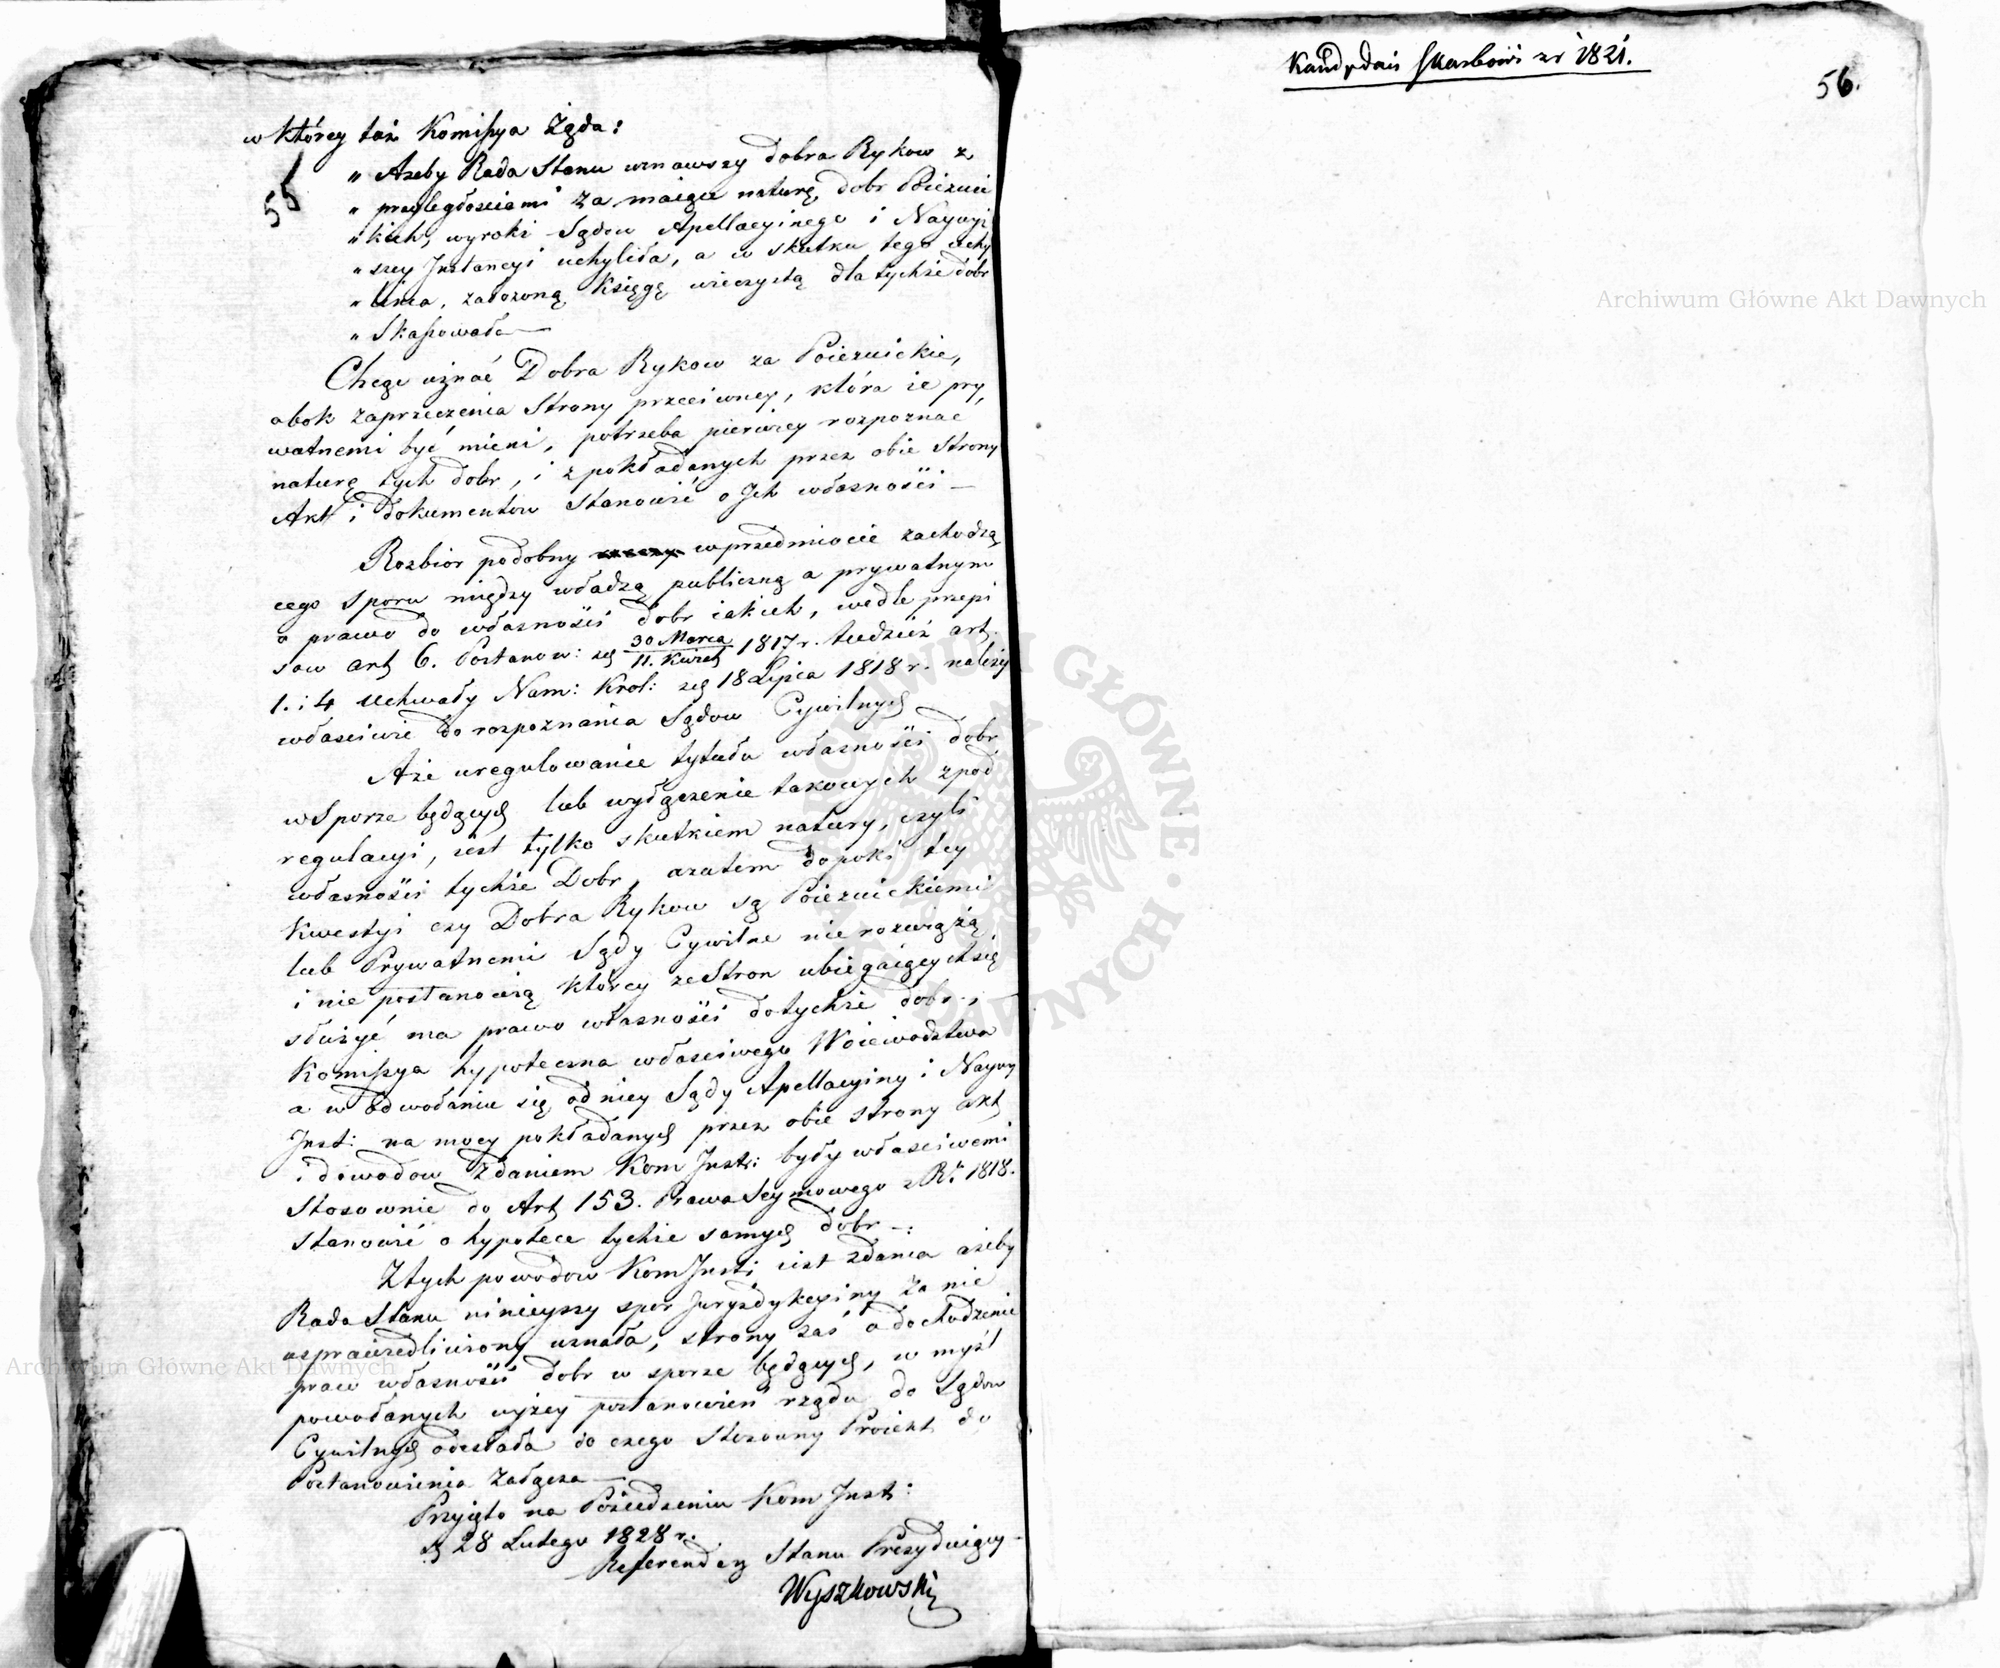 w którey taż Komissya Żąda:
55
" Ażeby Rada Stanu uznawszy dobra Rykow z
" przyległościami za maiące naturę dobr Poiezuic
" kich, wyroki Sądow Apellacyinego i Naywyż
" szey Instancyi uchyliła, a w skutku tego uchy
" lenia, założoną Księgę wieczystą dla tychże dobr
" Skassowała —
Chcąc uznać Dobra Rykow za Poiezuickie,
obok zaprzeczenia Strony przeciwney, która ie pry,
watnemi być mieni, potrzeba pierwiey rozpoznać
naturę tych dobr, i z pokładanych przez obie Strony
Akt i Dokumentow Stanowić o Ich własności —
Rozbior podobny w przedmiocie zachodzą
cego sporu między władzą publiczną a prywatnym
o prawo do własności dobr iakich, wedle przepi
sow art 6. Postanow: z d 30 Marca / 11. Kwiet 1817 r. tudzież art.
1. i 4 Uchwały Nam: Krol: z d 18 Lipca 1818 r. należy
właściwie do rozpoznania Sądow Cywilnych
A że uregulowanie tytułu własności dobr
w Sporze będących lub wyłączenie takowych z pod
regulacyi, iest tylko skutkiem natury, czyli
własności tychże Dobr, a zatem dopoki tey
Kwestyi czy Dobra Rykow są Poiezuickiemi
lub Prywatnemi Sądy Cywilne nie rozwiążą
i nie postanowią ktorey ze Stron ubiegaiących się
służyć ma prawo własności do tychże dobr,
Komissya hypoteczna właściwego Woiewodztwa
a w odwołaniu się od niey Sądy Apellacyiny i Naywy
Inst: na mocy pokładanych przez obie strony akt
i dowodow Zdaniem Kom Inst: były właściwemi
Stosownie do Art 153. Prawa Seymowego z Rů 1818.
Stanowić o hypotece tychże samych dobr —:
Z tych powodow Kom Inst: iest zdania ażeby
Rada Stanu ninieyszy spor Jurysdykcyiny za nie
usprawiedliwiony uznała, strony zaś o dochodzenie
praw własności dobr w sporze będących, w myśl
powołanych wyżey postanowień rządu do Sądow
Cywilnych odesłała do czego stosowny Proiekt do
Postanowienia Załącza —
Przyięto na Posiedzeniu Kom Inst:
d 28 Lutego 1828 r.
Referendarz Stanu Prezyduiący
Wyszkowski
Skarbowi 1821.
56.
Archiwum Główne Akt Dawnych
Archiwum Główne Akt Dawnych
ARCHIWUM GŁÓWNE AKT DAWNYCH